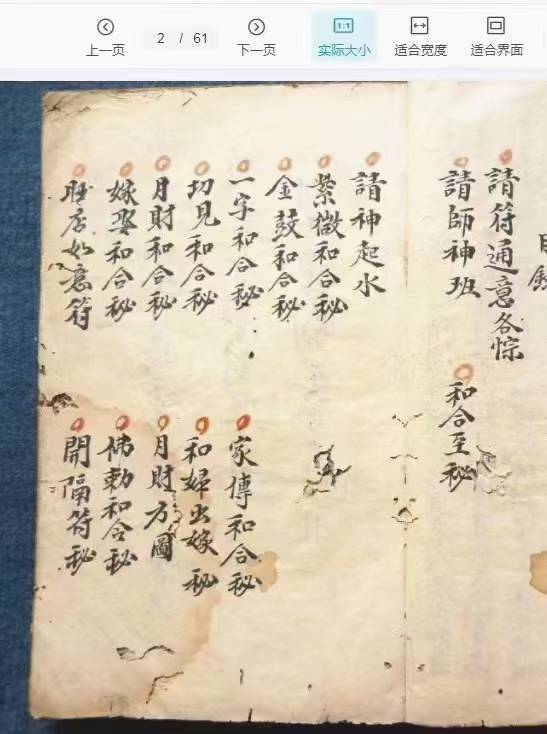 上一页
2 / 61
下一页
实际大小
适合宽度
适合界面
目錄
請符通意各悰
請師神班
和合至秘
請神起水
紫微和合秘
金鼓和合秘
一字和合秘
切見和合秘
月財和合秘
嫁娶和合秘
旺店如意符
家傳和合秘
和婦出嫁秘
月財方圖
佛勅和合秘
開隔符秘